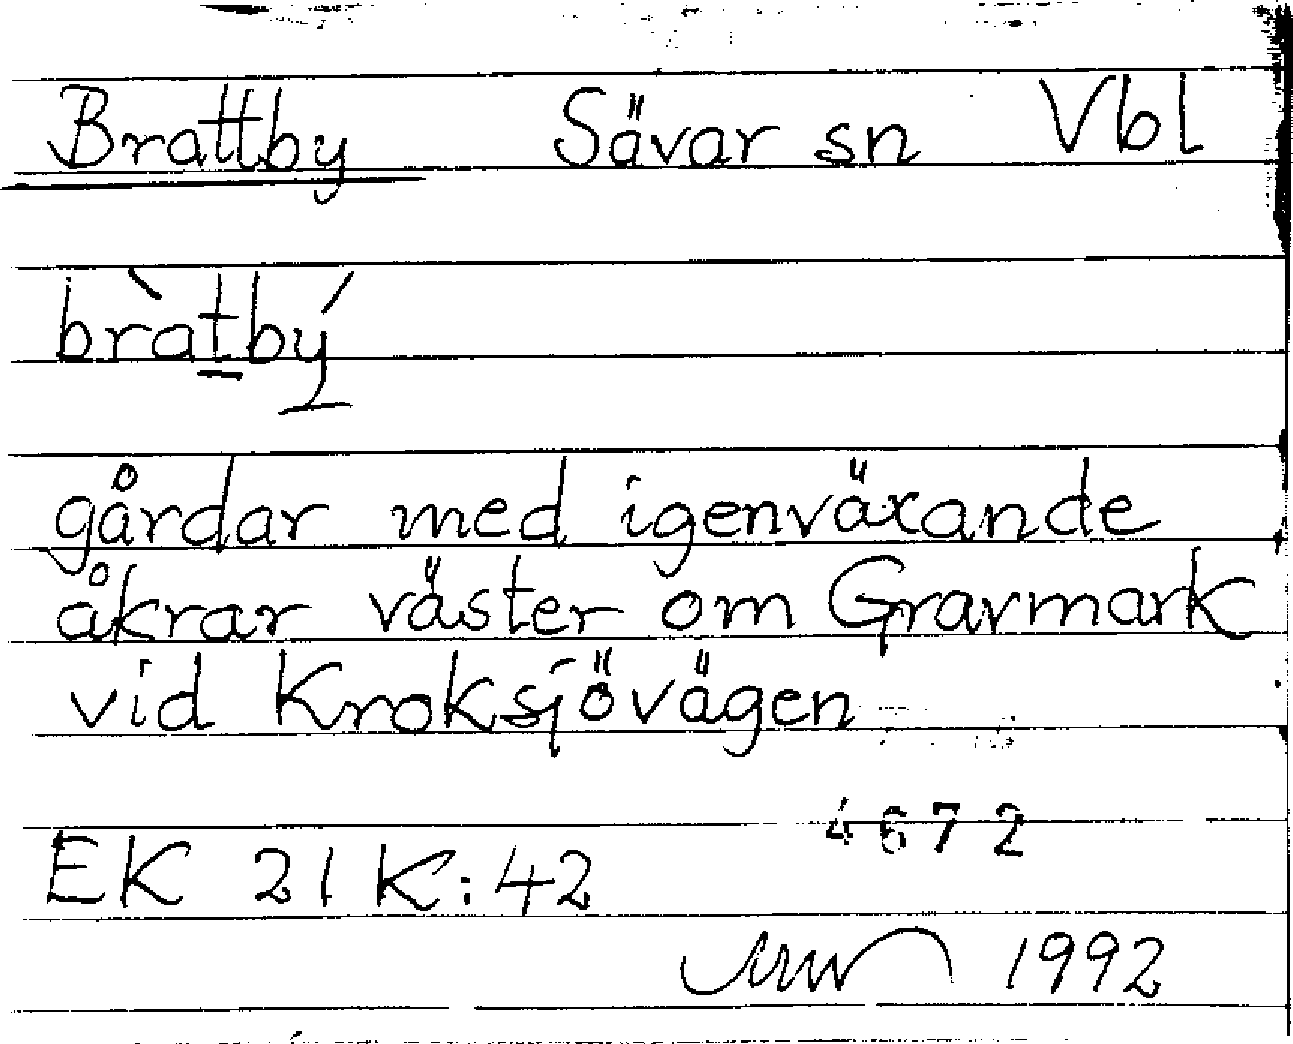 Brattby Sävar sn Vbl
bràtbý
gårdar med igenväxande
åkrar väster om Gravmark
vid Kroksjövägen
4672
EK 21 K:42
1992